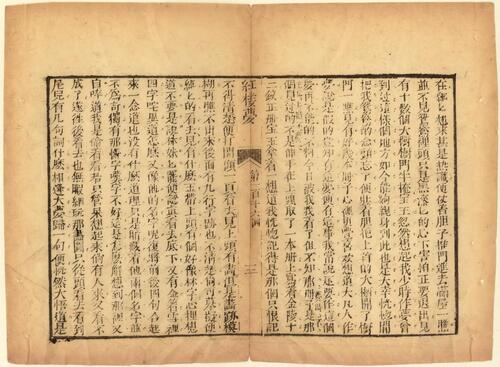 在那𥚃想來甚是熟識便仗着胆子推門進去滿屋一瞧
並不見鴛鴦裡頭只是黑漆匕的心下害怕正要退出見
有十數個大橱橱門半掩寶玉忽然想起我少時作夢曾
到過這個地方如今能夠親身到此也是大幸恍惚間
把找鴛鴦的念頭忘了便壯着胆把上首的大橱開了橱
門一瞧見有好幾本冊子心裡更覺喜歡想道大凡人作
夢說是假的豈知有這夢便有這事我常說還要作這個
夢再不能的不料今日被我找着了但不知那冊子是那
個見過的不是伸手在上頭取了一本冊上寫着金陵十
二釵正冊寶玉拿着一想道我恍惚記得是那個只恨記
紅樓夢
第一百十六回
三
不得清楚便打開頭一頁看去見上頭有畫但是畫跡模
糊再瞧不出來後面有幾行字跡也不清楚尚可摹擬便
細匕的看去見有什麽玉帶上頭有個好像林字心裡想
道不要是說林妹妹罷便認真看去底下又有金簪雪裡
四字咤異道怎麽又像他的名字呢復將前後四句合起
來一念道也沒有什麽道理只是暗藏着他兩個名字並
不為奇獨有那憐字嘆字不好這是怎麽解想到那裡又
自啐道我是偷着看若只管呆想起來倘有人來又看不
成了遂往後看去也無暇細玩那畫圖只從頭看去看到
尾兒有幾句詞什麽相逢大夢歸一句便恍然大悟道是